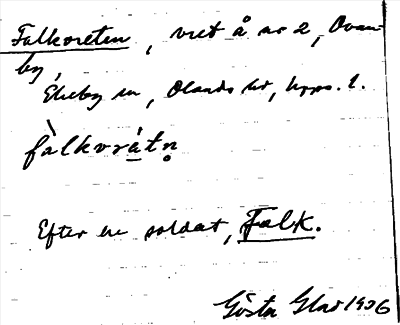 Falkvreten, vret å nr 2, Ovan-
by,
Ekeby sn, Olands hd, Upps. l.
fàlkvrátn̥
Efter en soldat, Falk.
Gösta Glad 1936